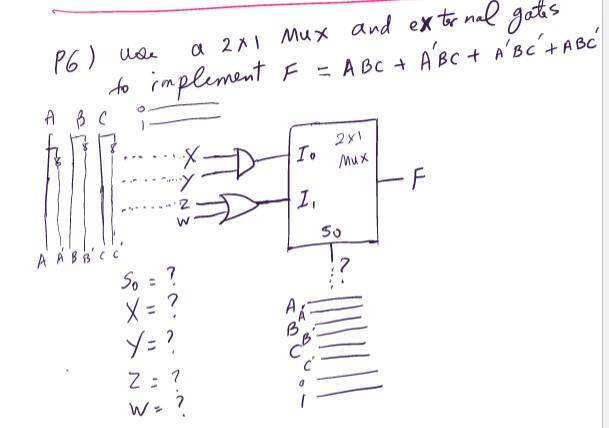 P6) use a 2x1 Mux and external gates
to implement F = ABC + A'BC + A'BC' + ABC'
A B C 0
1
X
Y
Z
W
I0
I1
2x1
Mux
S0
F
A A' B B' C C'
?
S0 = ?
X = ?
Y = ?
Z = ?
W = ?
A
A'
B
B'
C
C'
0
1